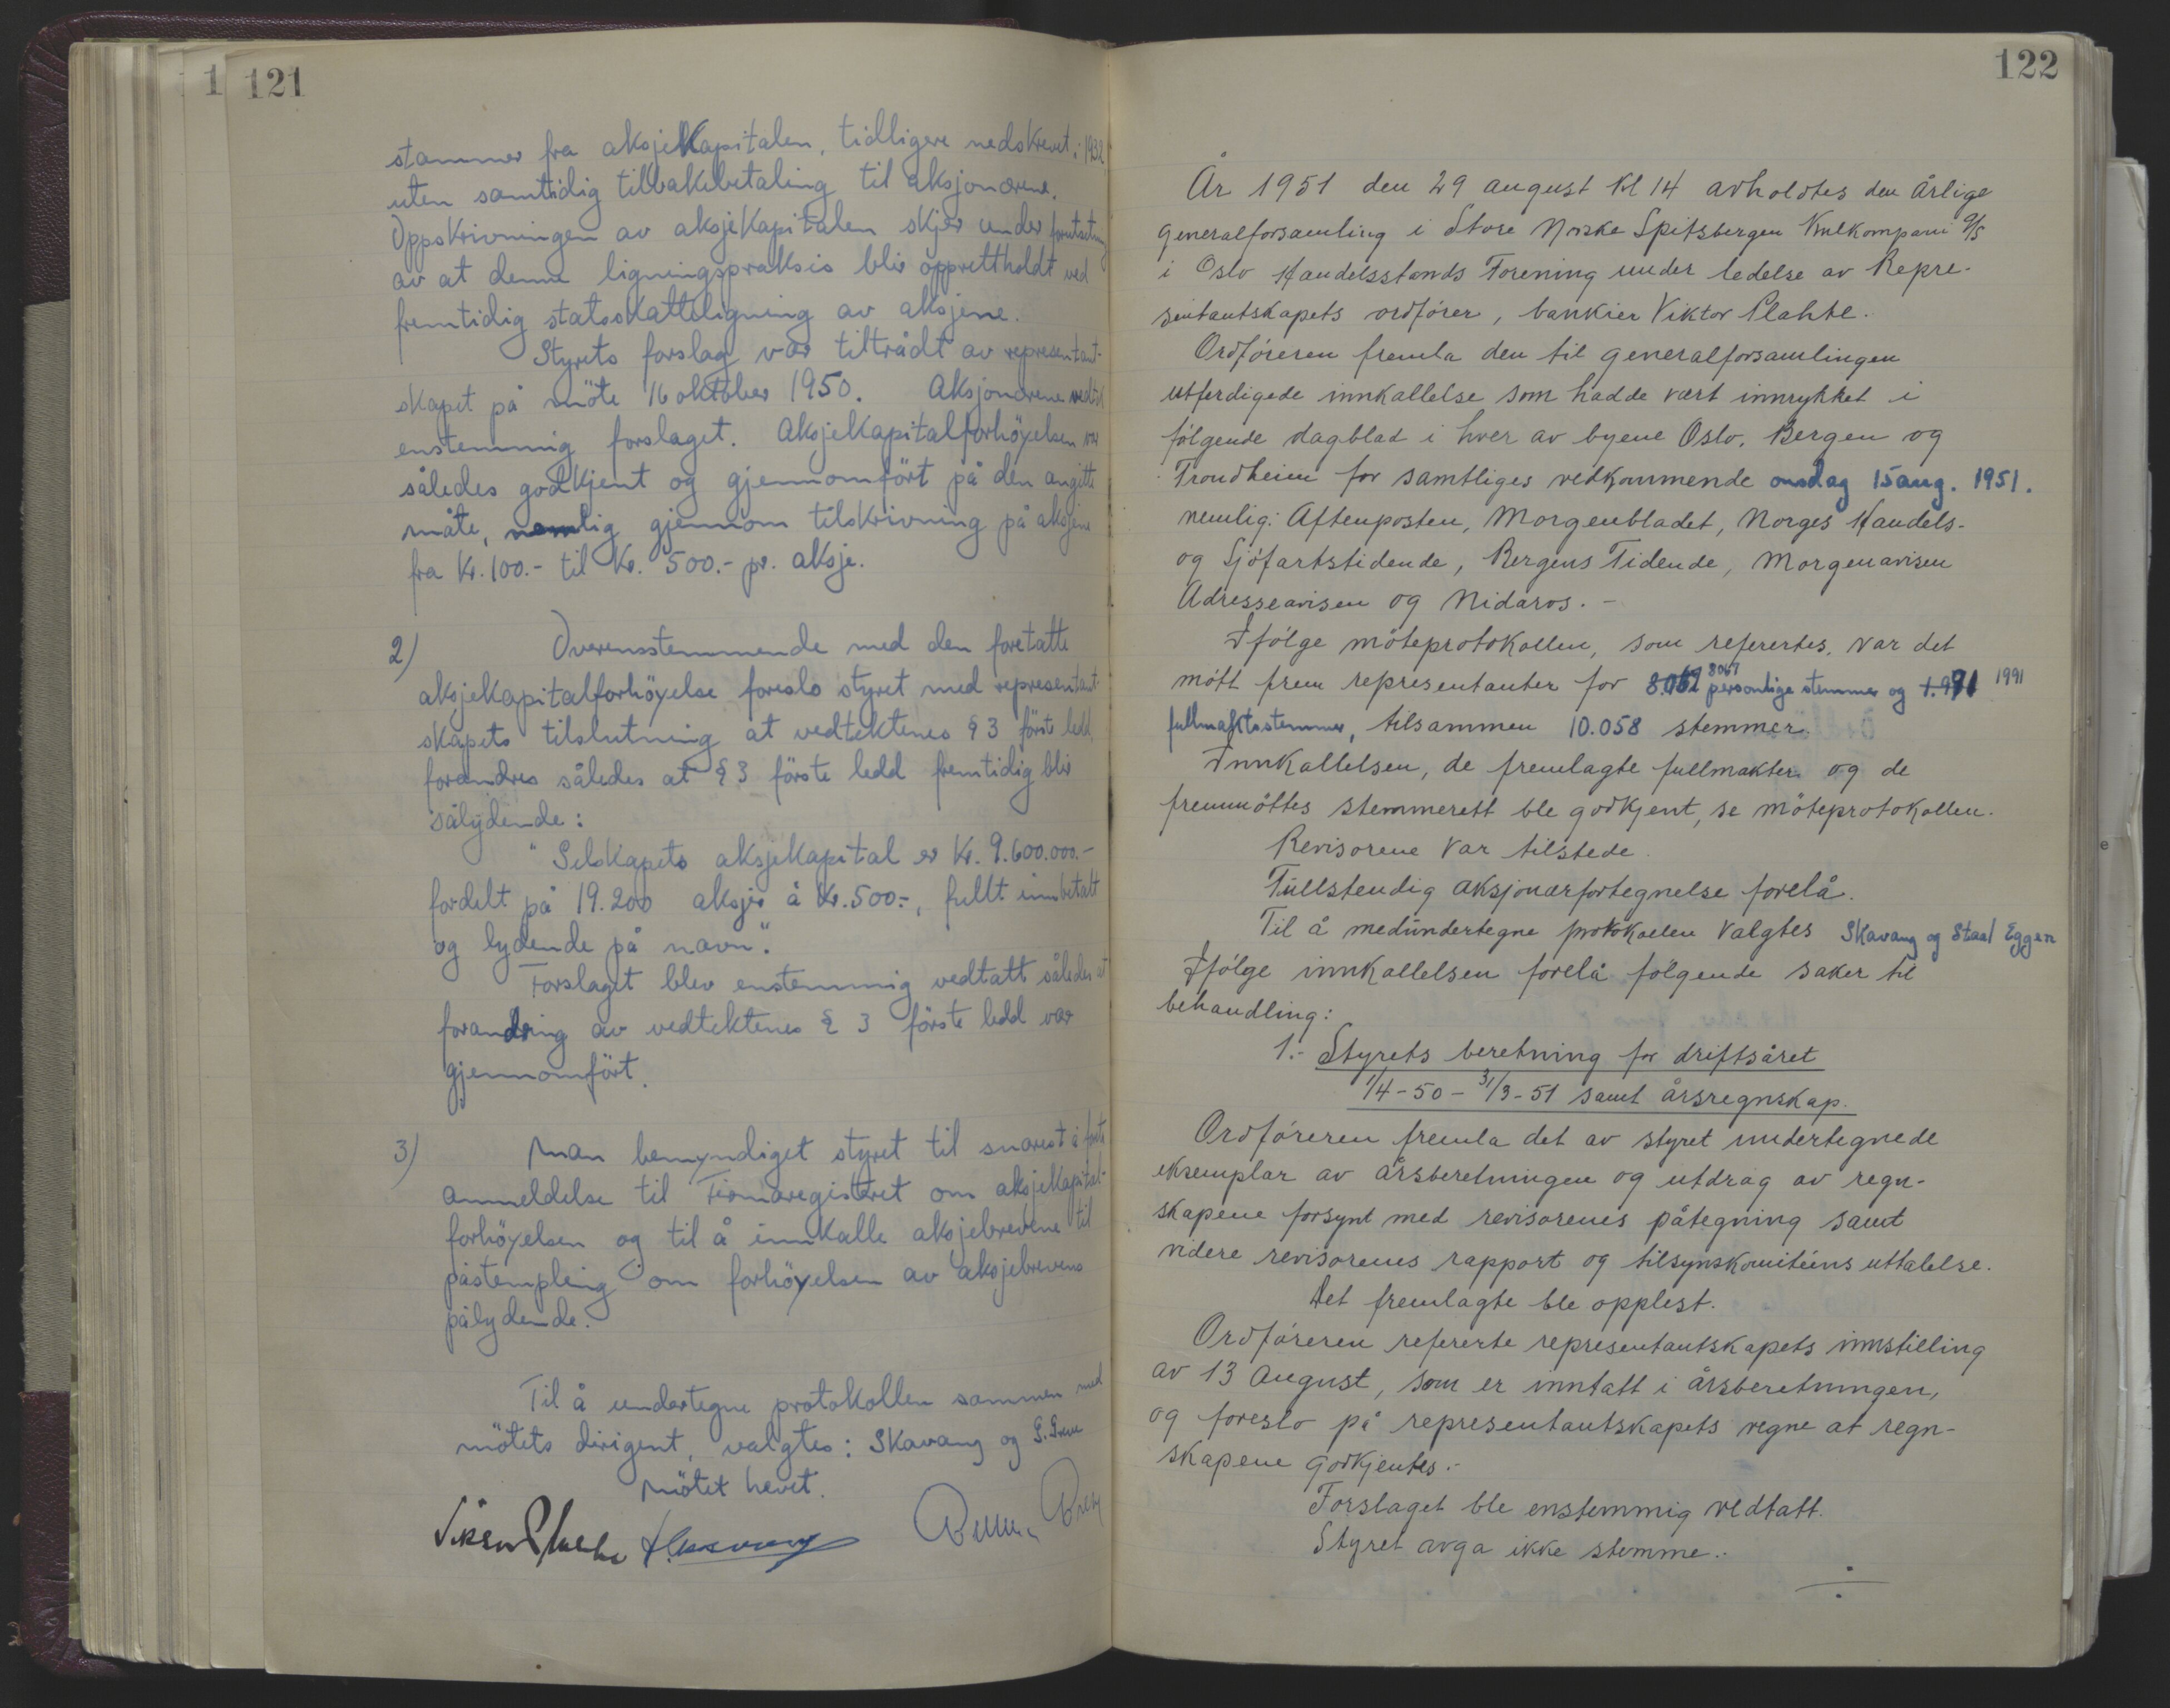 121
stammer fra aksjekapitalen, tidligere nedskrevet i 1932
uten samtidig tilbakebetaling til aksjonærene.
Oppskrivningen av aksjekapitalen skjer under forutsetning
av at denne ligningspraksis blir opprettholdt ved
fremtidig statsskatteligning av aksjene.
Styrets forslag var tiltrådt av representant-
skapet på möte 16 oktober 1950. Aksjonærene vedtok
enstemmig forslaget. Aksjekapitalforhöyelsen var
således godkjent og gjennomfört på den angitte
måte, nemlig gjennom tilskrivning på aksjene
fra Kr. 100.- til Kr. 500.- pr. aksje.
2) Overensstemmende med den foretatte
aksjekapitalforhöyelse foreslo styret med representant-
skapets tilslutning at vedtektenes § 3 förste ledd
forandres således at § 3 förste ledd fremtidig blir
sålydende:
"Selskapets aksjekapital er Kr. 9.600.000.-
fordelt på 19.200 aksjer å Kr. 500.-, fullt innbetalt
og lydende på navn".
Forslaget blev enstemmig vedtatt således at
forandring av vedtektenes § 3 förste ledd var
gjennomfört.
3) Man bemyndiget styret til snarest å foreta
anmeldelse til Firmaregisteret om aksjekapital-
forhöyelsen og til å innkalle aksjebrevene til
påstempling om forhöyelsen av aksjebrevens
pålydende.
Til å undertegne protokollen sammen med
mötets dirigent, valgtes: Skavang og
Mötet hevet.
122
År 1951 den 29 august kl 14 avholdtes den årlige
generalforsamling i Store Norske Spitsbergen Kulkompani A/S
i Oslo Handelsstands Forening under ledelse av Repre-
sentantskapets ordförer, bankier Viktor Plahte.
Ordföreren fremla den til generalforsamlingen
utferdigede innkallelse som hadde vært innrykket i
fölgende dagblad i hver av byene Oslo, Bergen og
Trondheim for samtliges vedkommende onsdag 15 aug. 1951.
nemlig: Aftenposten, Morgenbladet, Norges Handels-
og Sjöfartstidende, Bergens Tidende, Morgenavisen
Adresseavisen og Nidaros. -
Ifölge möteprotokollen, som referertes, var det
mött frem representanter for 8067 personlige stemmer og 1.991 1991
fullmaktsstemmer, tilsammen 10.058 stemmer.
Innkallelsen, de fremlagte fullmakter og de
fremmöttes stemmerett ble godkjent, se möteprotokollen.
Revisorene var tilstede.
Fullstendig aksjonærfortegnelse forelå.
Til å medundertegne protokollen valgtes Skavang og Staal Eggen
Ifölge innkallelsen forelå fölgende saker til
behandling:
1.- Styrets beretning for driftsåret
1/4-50 - 31/3-51 samt årsregnskap.
Ordföreren fremla det av styret undertegnede
eksemplar av årsberetningen og utdrag av regn-
skapene forsynt med revisorenes påtegning samt
videre revisorenes rapport og tilsynskomitéens uttalelse.
Det fremlagte ble opplest.
Ordföreren refererte representantskapets innstilling
av 13 August, som er inntatt i årsberetningen,
og foreslo på representantskapets vegne at regn-
skapene godkjentes.-
Forslaget ble enstemmig vedtatt.
Styret avga ikke stemme.-